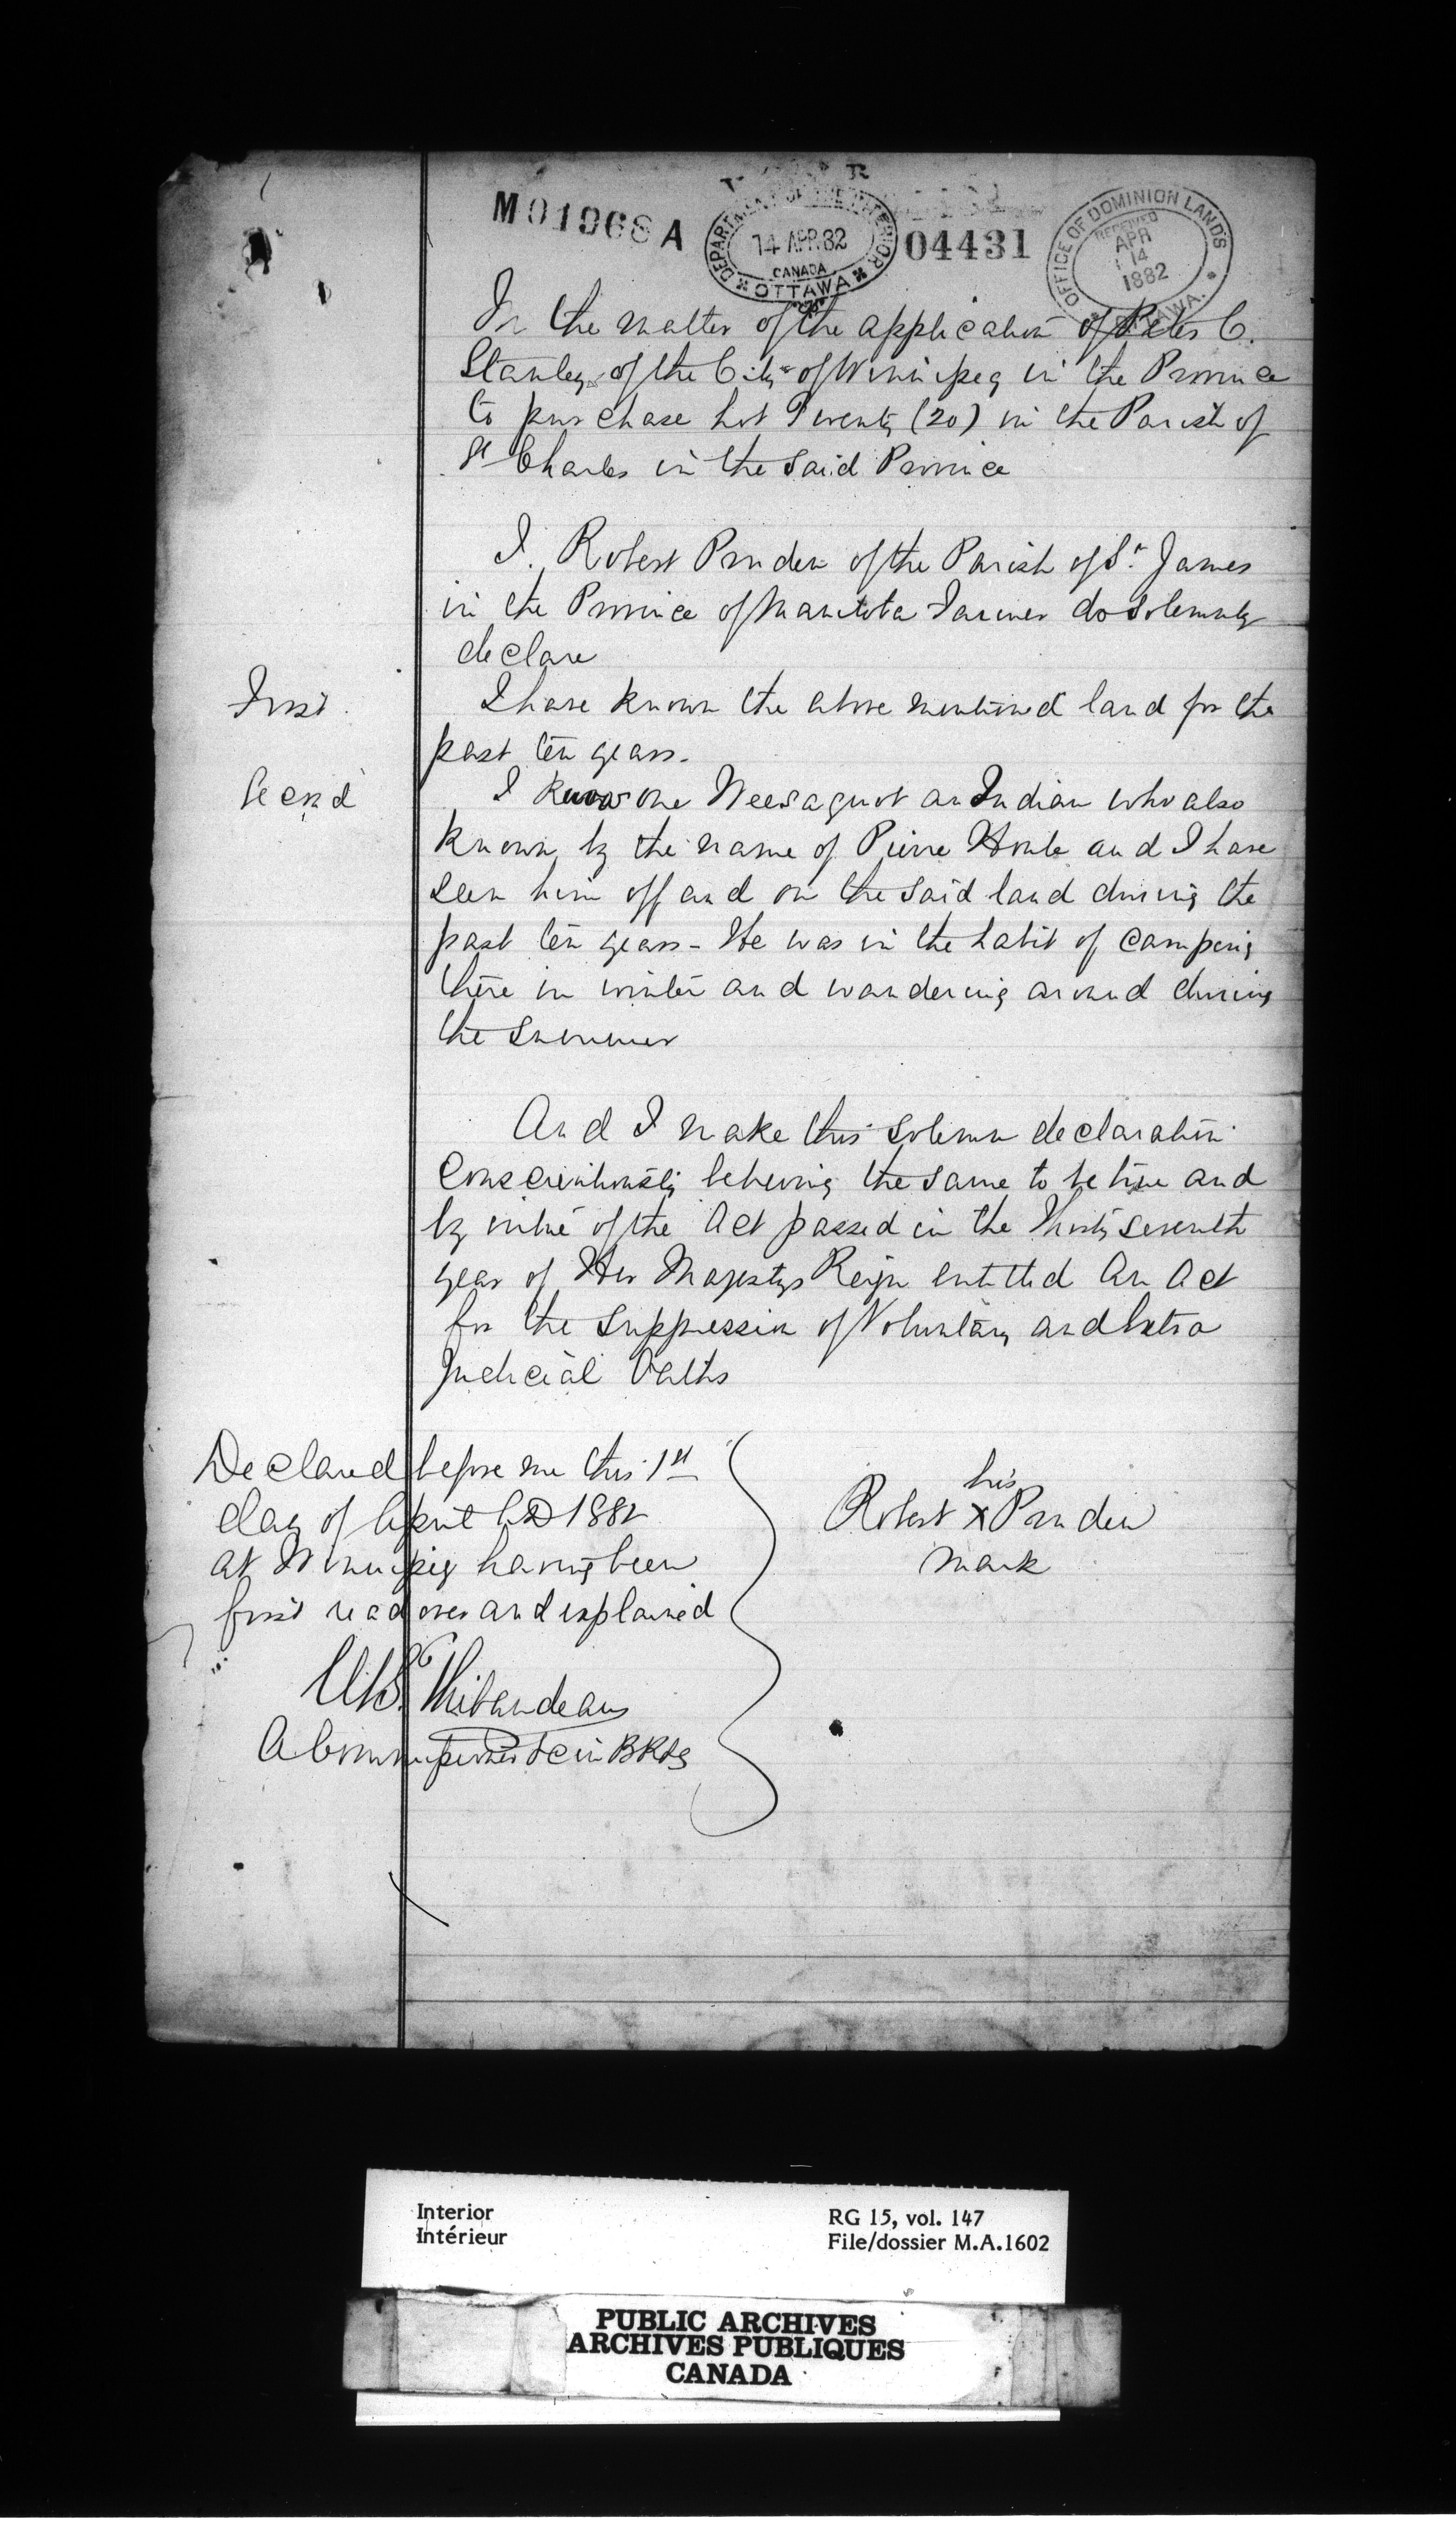 M01968 A
DEPARTMENT OF THE INTERIOR
14 APR. 82
CANADA
OTTAWA
04431
OFFICE OF DOMINION LANDS
RECEIVED
APR
14
1882
OTTAWA.
In the matter of the application of Peter C.
Stanley of the City of Winnipeg in the Province
to purchase Lot Twenty (20) in the Parish of
St Charles in the said Province
I. Robert Pruden of the Parish of St. James
in the Province of Manitoba Farmer do solemnly
declare
First. I have known the above mentioned land for the
past ten years.
Second I know one Weesaquot an Indian who also
known by the name of Pierre Houle and I have
seen him off and on the said land during the
past ten years - He was in the habit of camping
there in winter and wandering around during
the summer
And I make this solemn declaration
conscientiously believing the same to be true and
by virtue of the Act passed in the Thirty seventh
year of Her Majestys Reign entitled An Act
for the suppression of Voluntary and Extra
Judicial Oaths
Declared before me this 1st
day of April AD 1882
at Winnipeg having been
first read over and explained
Thibaudeau
A Commissioner &c in BR &c
his
Robert X Pruden
mark
Interior
Intérieur
RG 15, vol. 147
File/dossier M.A.1602
PUBLIC ARCHIVES
ARCHIVES PUBLIQUES
CANADA